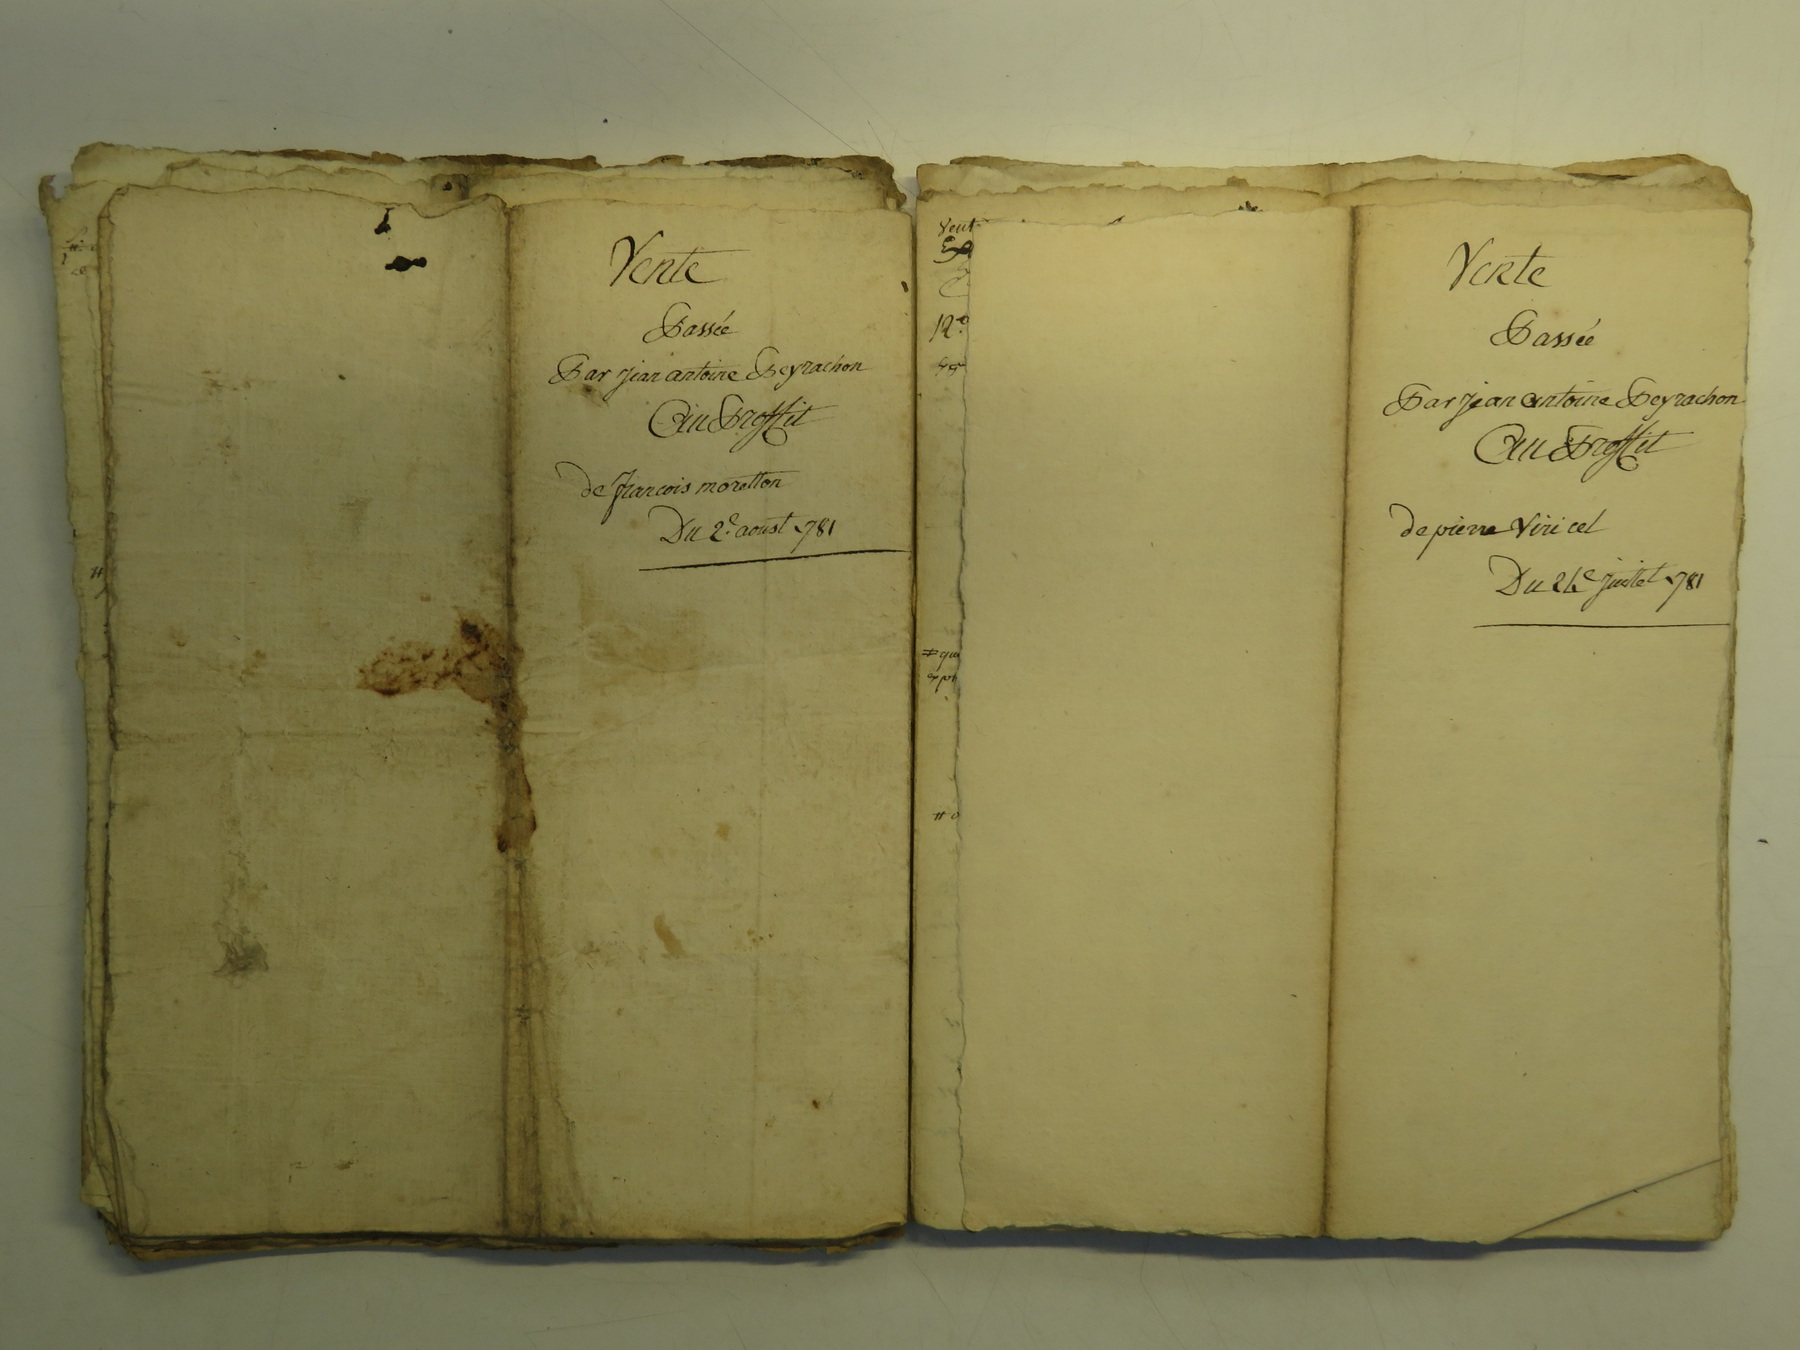 Vente
Passée
Par jean antoine Peyrachon
Au Proffit
de françois moretton
Du 2e aoust 781
Vent
12e
# qui
Vente
Passée
Par jean antoine Peyrachon
Au Proffit
de pierre Viricel
Du 24e juillet 781